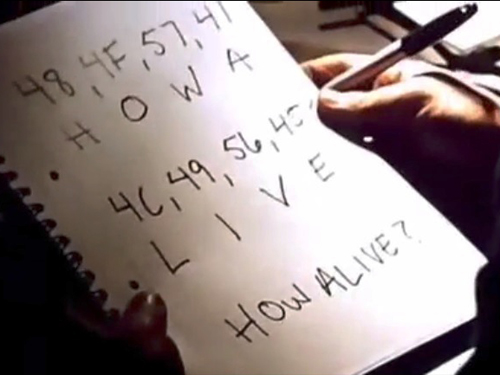 48, 4F, 57, 41
H O W A
4C, 49, 56, 45,
L I V E
HOW ALIVE?